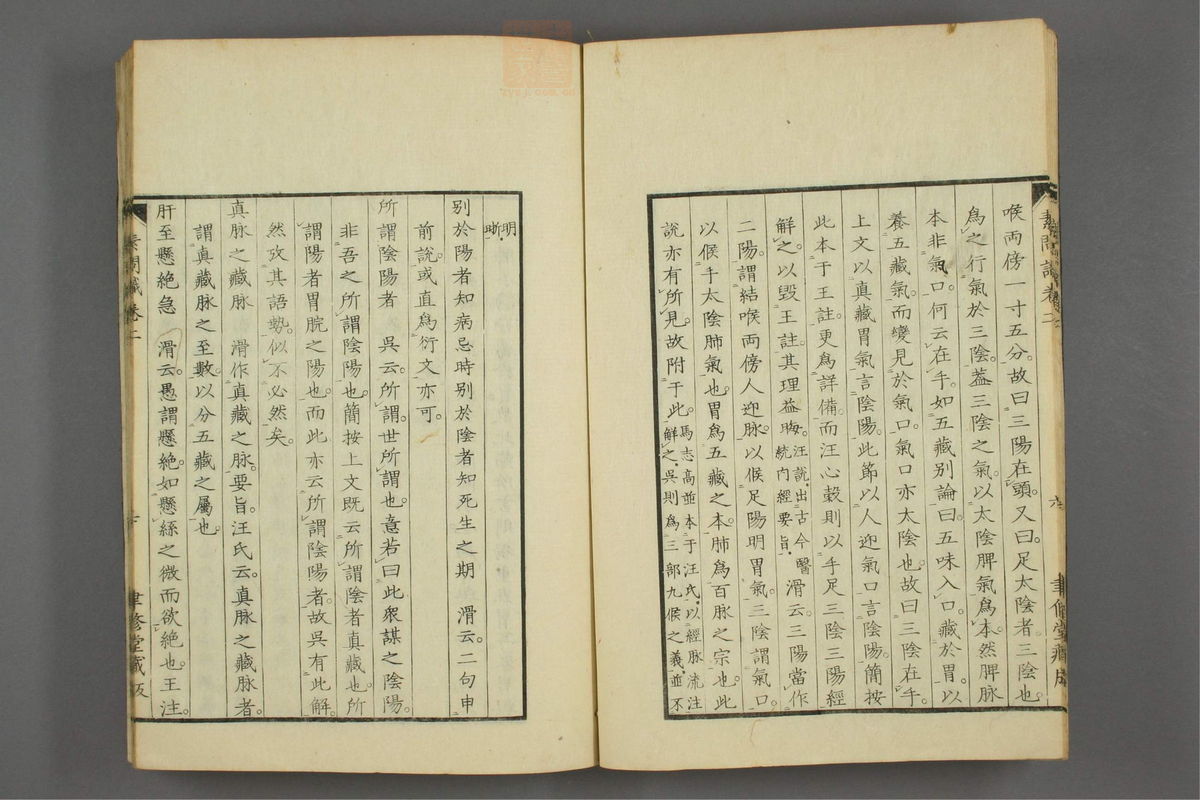 喉兩傍一寸五分。故曰三陽在頭。又曰足太陰者三陰也
爲之行氣於三陰。蓋三陰之氣。以太陰脾氣爲本。然脾脉
本非氣口。何云在手。如五藏别論曰。五味入口。藏於胃。以
養五藏氣。而變見於氣口。氣口亦太陰也。故曰三陰在手。
上文以真藏胃氣言陰陽。此節以人迎氣口言陰陽。簡按
此本于王註。更爲詳備。而汪心穀則以手足三陰三陽經
解之。以毀王註。其理益晦。汪說。出古今醫
統内經要旨。滑云。三陽當作
二陽。謂結喉兩傍人迎脉。以候足陽明胃氣。三陰謂氣口。
以候手太陰肺氣也。胃爲五藏之本。肺爲百脉之宗也。此
說亦有所見。故附于此。馬志高並本于汪氏。以經脉流注
解之。吳則爲三部九候之義。並不
明
晰
别於陽者知病忌時别於陰者知死生之期 滑云。二句申
前說。或直爲衍文亦可。
所謂陰陽者 吳云。所謂。世所謂也。意若曰此衆謀之陰陽。
非吾之所謂陰陽也。簡按上文既云所謂陰者真藏也。所
謂陽者胃脘之陽也。而此亦云所謂陰陽者。故吳有此解。
然攷其語勢。似不必然矣。
真脉之藏脉 滑作真藏之脉。要旨。汪氏云。真脉之藏脉者。
謂真藏脉之至數。以分五藏之屬也。
肝至懸絶急 滑云。愚謂懸絶。如懸絲之微而欲絶也。王注
素問識卷二
聿修堂藏版